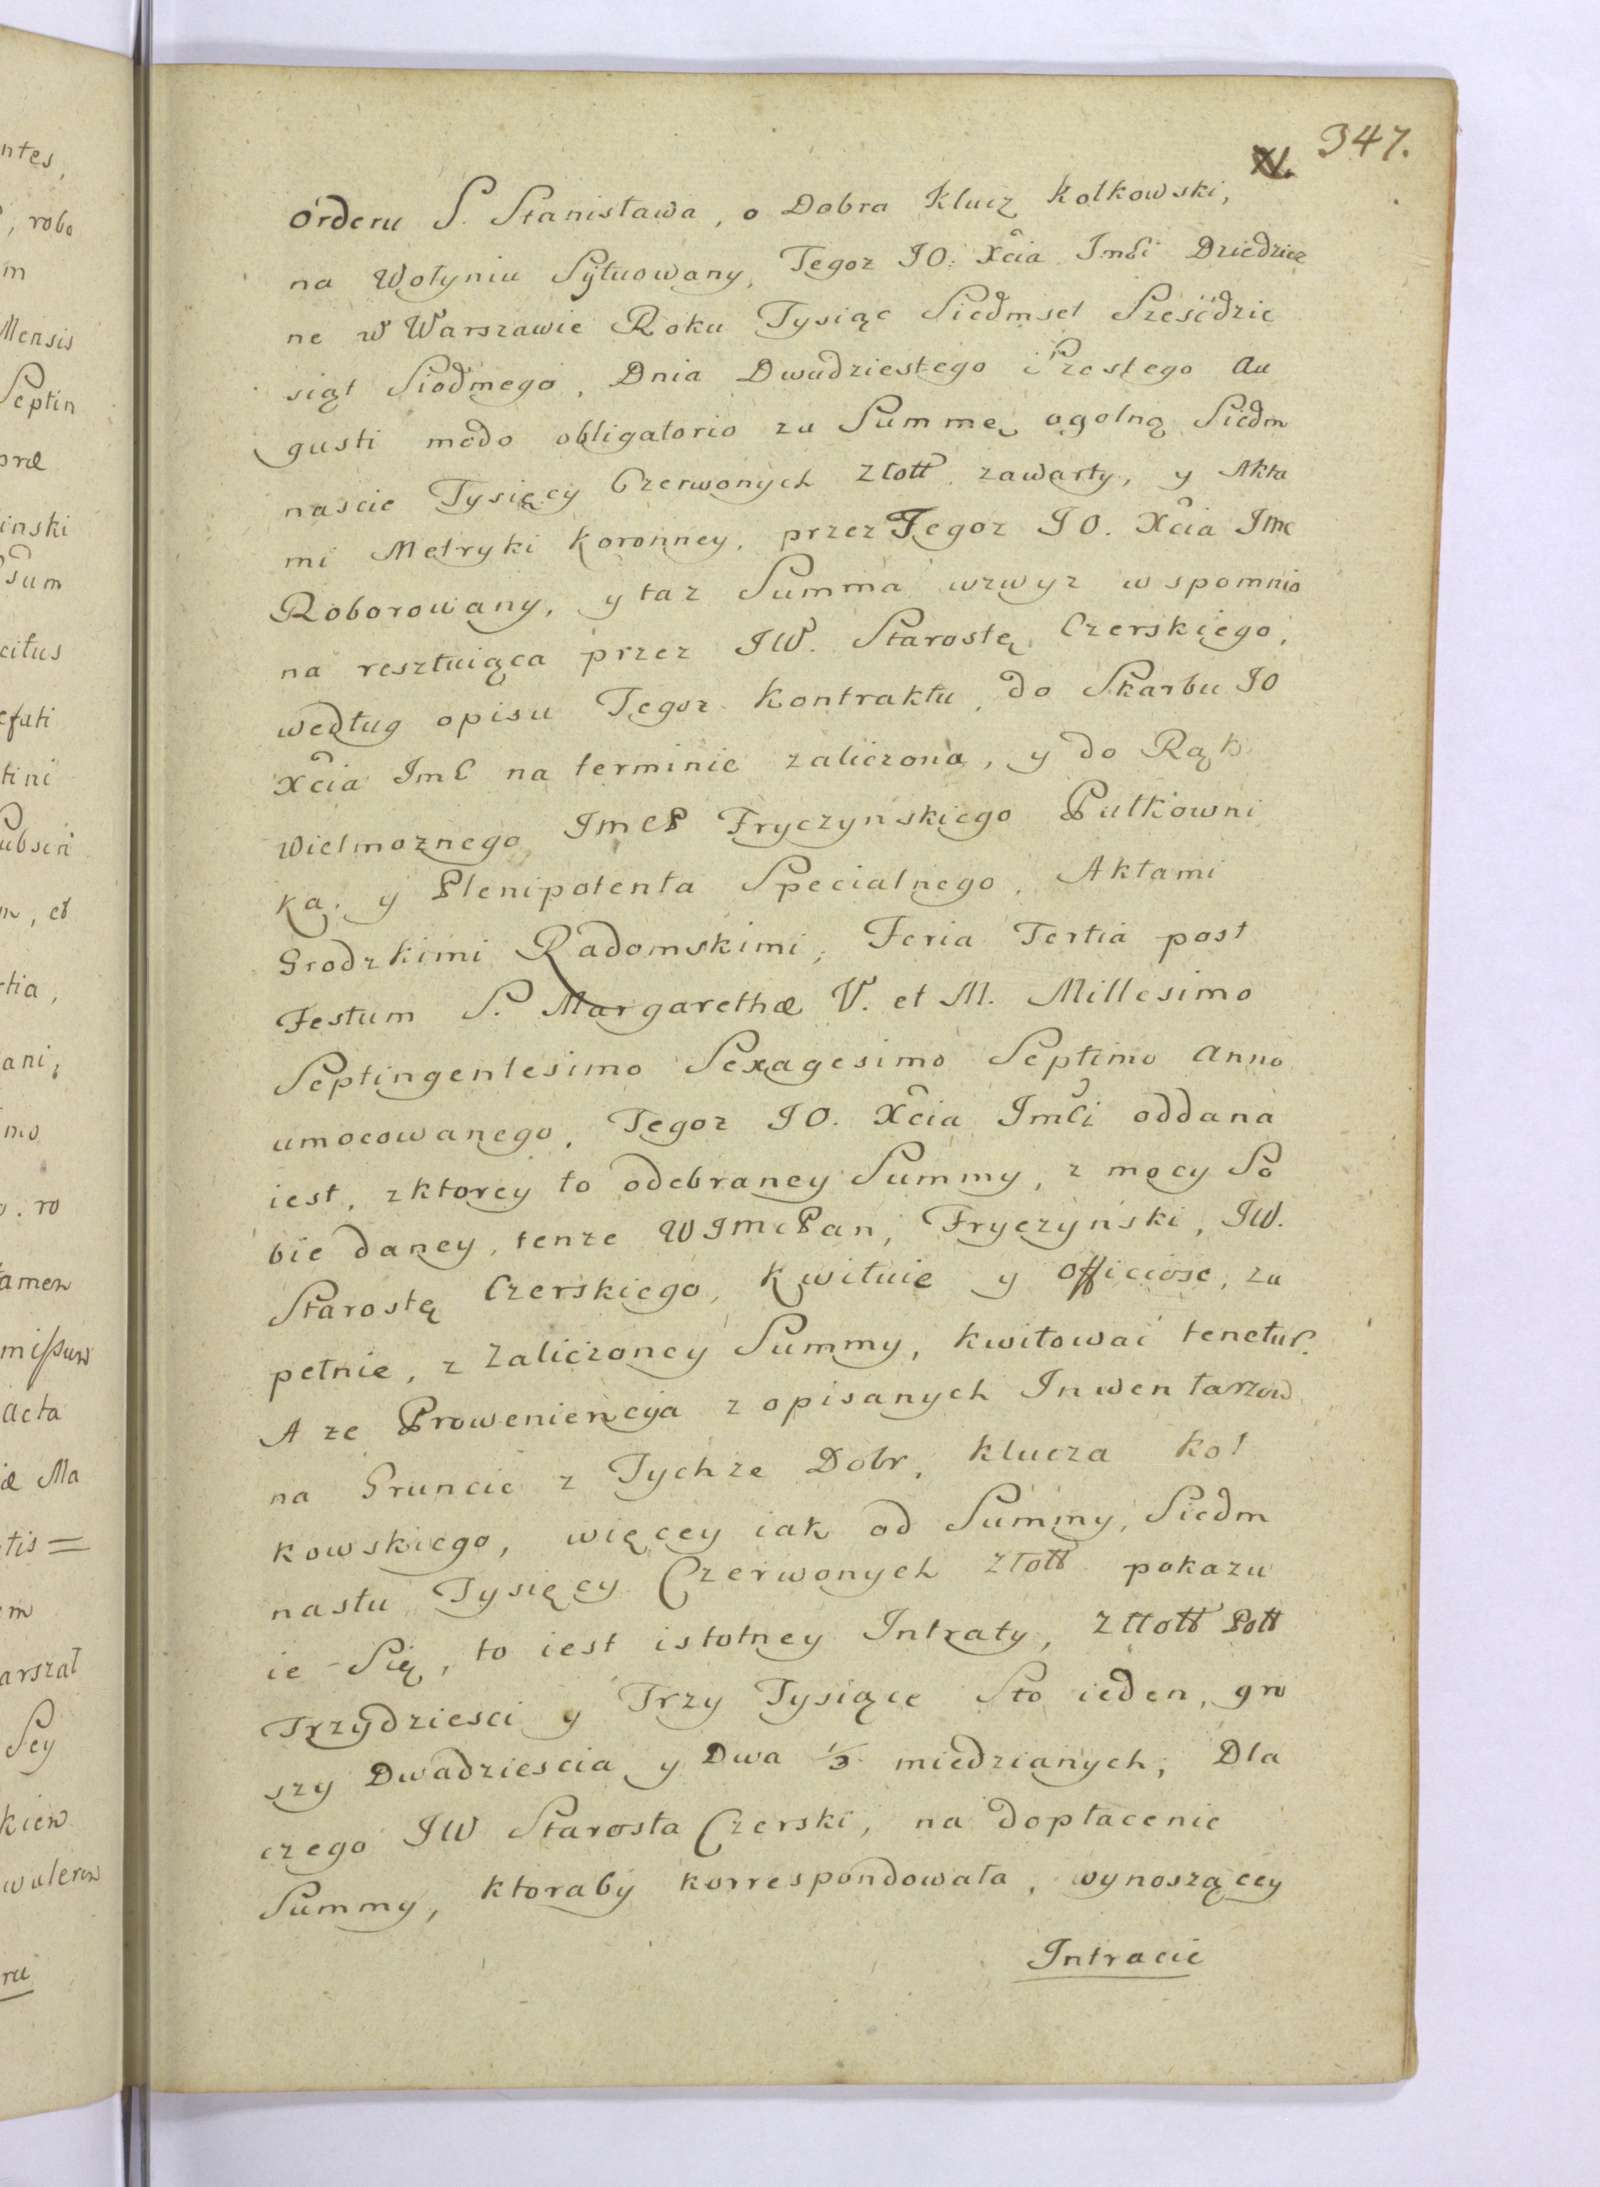 347.
Orderu S. Stanisława, o Dobra Klucz Kolkowski,
na Wołyniu Sytuowany, Tegoz JO: Xcia Jmci Dziedzicz
ne w Warszawie Roku Tysiąc Siedmset Sześćdzie
siąt Siodmego, Dnia Dwudziestego i Szostego Au
gusti modo obligatorio za Summę ogolną Siedm
nascie Tysięcy Czerwonych Złott zawarty, y Akta
mi Metryki Koronney, przez Tegoz JO. Xcia Jmc
Roborowany, y taz Summa wzwyz wspomnio
na resztuiąca przez JW. Starostę Czerskiego,
według opisu Tegoz Kontraktu, do Skarbu JO
Xcia JmC na terminie zaliczona, y do Rąk
Wielmoznego JmCP Fryczyńskiego Pułkowni
ka, y Plenipotenta Specialnego, Aktami
Grodzkimi Radomskimi, Feria Tertia post
Festum S. Margarethæ V. et M. Millesimo
Septingentesimo Sexagesimo Septimo Anno
umocowanego, Tegoz JO. Xcia JmCi oddana
iest, z ktorey to odebraney Summy, z mocy So
bie daney, tenze WJmcPan, Fryczyński, JW.
Starostę Czerskiego, Kwituie y officiose, zu
pełnie, z Zaliczoney Summy, kwitować tenetur.
A ze Proweniencyja z opisanych Inwentarzow
na Gruncie z Tychze Dobr, Klucza Kol
kowskiego, więcey iak od Summy, Siedm
nastu Tysięcy Czerwonych Złott pokazu
ie Się, to iest istotney Intraty, Złłott Poll
Trzydziesci y Trzy Tysiące Sto ieden, gro
szy Dwadziescia y Dwa 1/3 miedzianych, Dla
czego JW Starosta Czerski, na dopłacenie
Summy, ktoraby korrespondowała, wynoszącey
Intracie